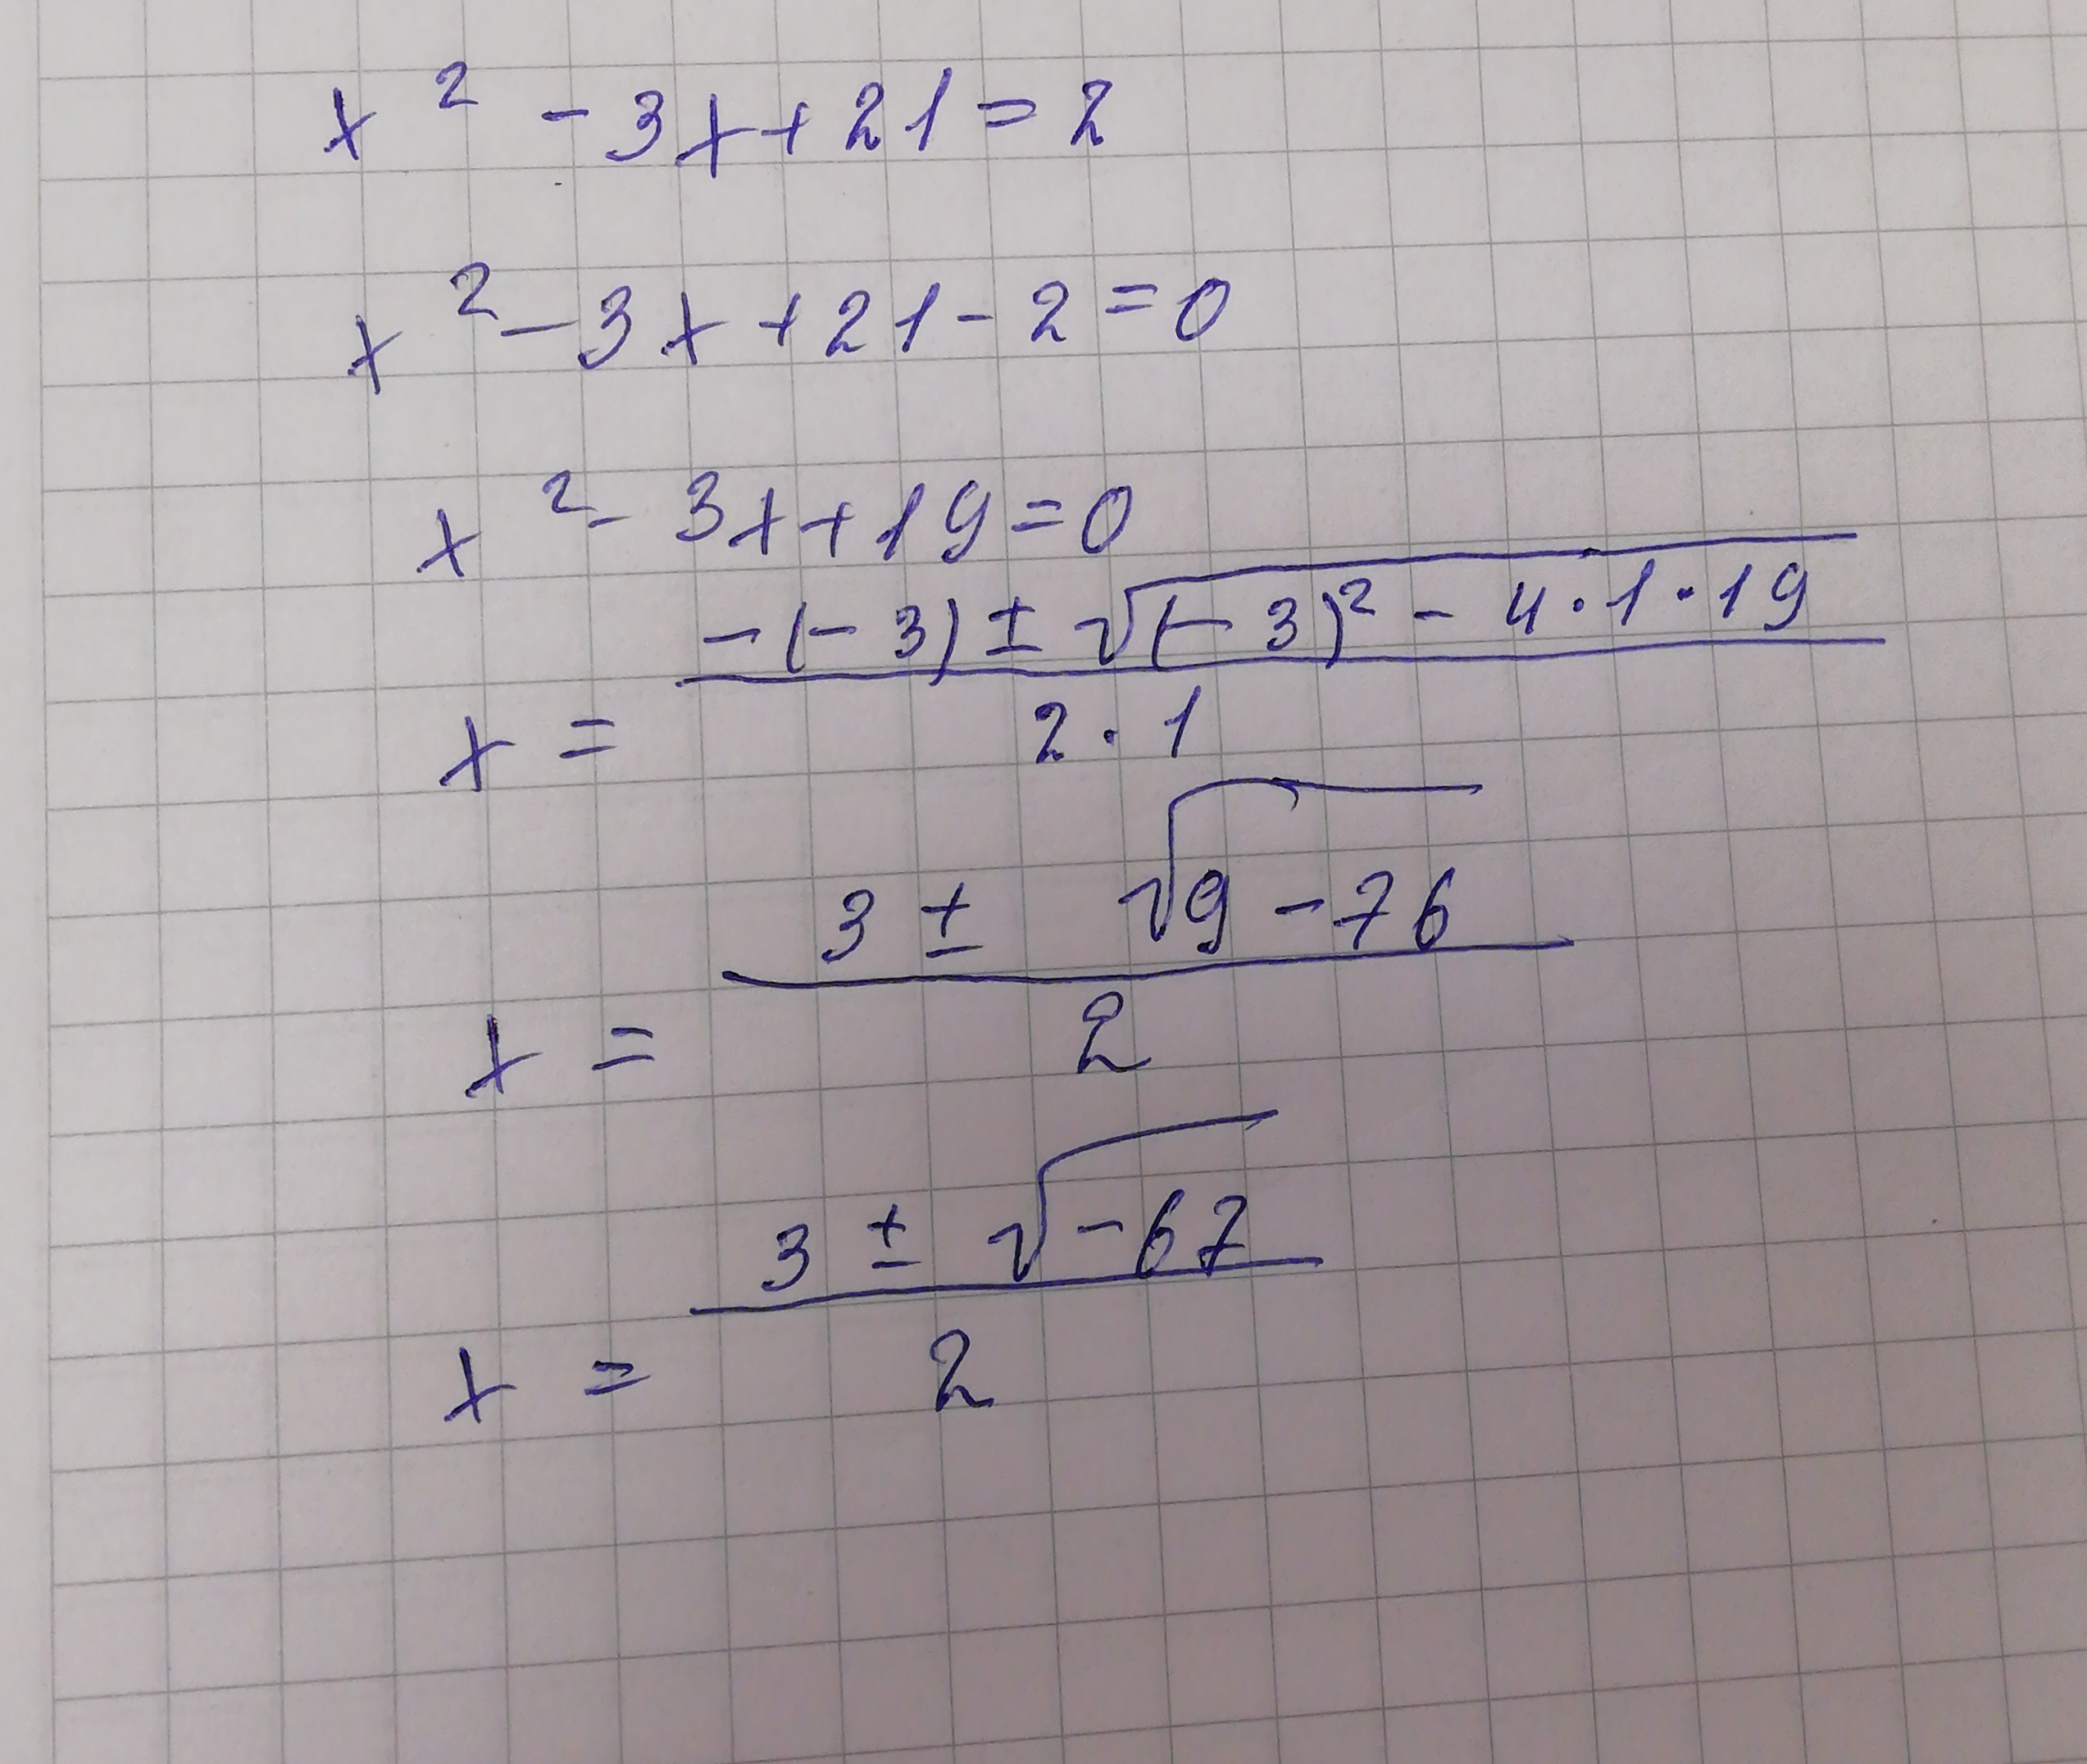 x² - 3x + 21 = 2
x² - 3x + 21 - 2 = 0
x² - 3x + 19 = 0
x = (-(-3) ± √((-3)² - 4·1·19)) / (2·1)
x = (3 ± √(9 - 76)) / 2
x = (3 ± √(-67)) / 2